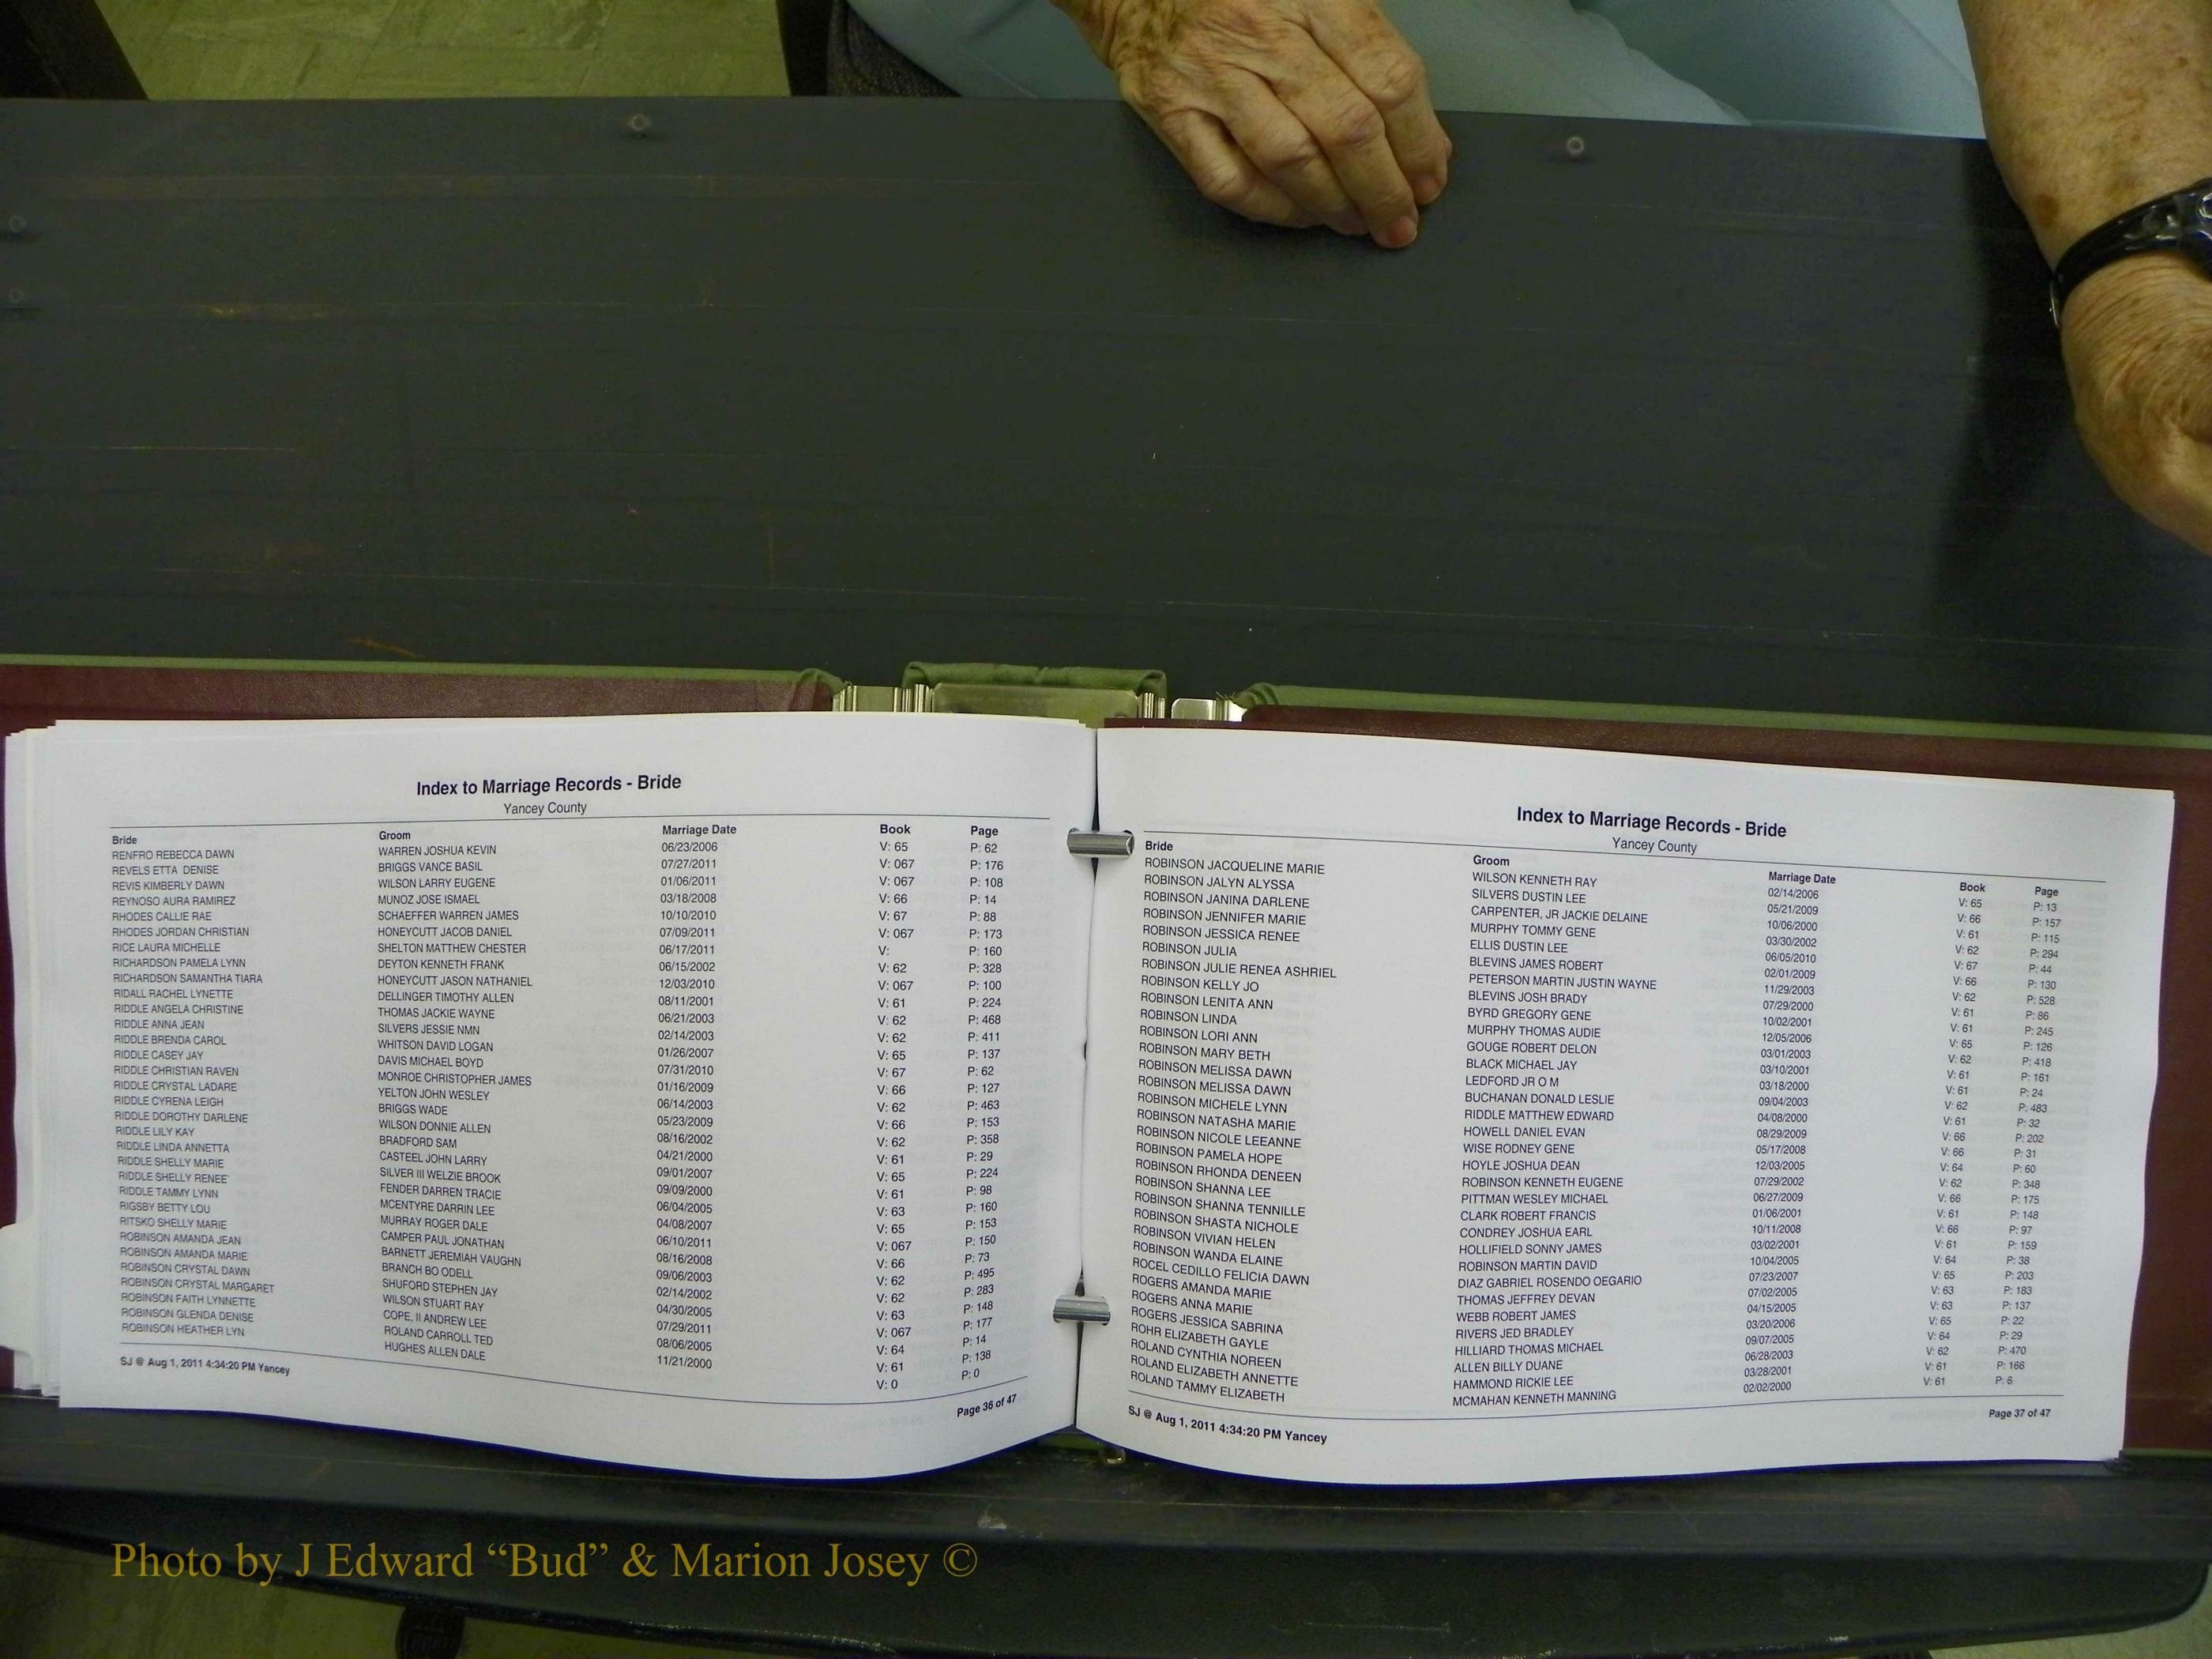 Index to Marriage Records - Bride
Yancey County
Bride Groom Marriage Date Book Page
RENFRO REBECCA DAWN WARREN JOSHUA KEVIN 06/23/2006 V: 65 P: 62
REVELS ETTA DENISE BRIGGS VANCE BASIL 07/27/2011 V: 067 P: 176
REVIS KIMBERLY DAWN WILSON LARRY EUGENE 01/06/2011 V: 067 P: 108
REYNOSO AURA RAMIREZ MUNOZ JOSE ISMAEL 03/18/2008 V: 66 P: 14
RHODES CALLIE RAE SCHAEFFER WARREN JAMES 10/10/2010 V: 67 P: 88
RHODES JORDAN CHRISTIAN HONEYCUTT JACOB DANIEL 07/09/2011 V: 067 P: 173
RICE LAURA MICHELLE SHELTON MATTHEW CHESTER 06/17/2011 V: P: 160
RICHARDSON PAMELA LYNN DEYTON KENNETH FRANK 06/15/2002 V: 62 P: 328
RICHARDSON SAMANTHA TIARA HONEYCUTT JASON NATHANIEL 12/03/2010 V: 067 P: 100
RIDALL RACHEL LYNETTE DELLINGER TIMOTHY ALLEN 08/11/2001 V: 61 P: 224
RIDDLE ANGELA CHRISTINE THOMAS JACKIE WAYNE 06/21/2003 V: 62 P: 468
RIDDLE ANNA JEAN SILVERS JESSIE NMN 02/14/2003 V: 62 P: 411
RIDDLE BRENDA CAROL WHITSON DAVID LOGAN 01/26/2007 V: 65 P: 137
RIDDLE CASEY JAY DAVIS MICHAEL BOYD 07/31/2010 V: 67 P: 62
RIDDLE CHRISTIAN RAVEN MONROE CHRISTOPHER JAMES 01/16/2009 V: 66 P: 127
RIDDLE CRYSTAL LADARE YELTON JOHN WESLEY 06/14/2003 V: 62 P: 463
RIDDLE CYRENA LEIGH BRIGGS WADE 05/23/2009 V: 66 P: 153
RIDDLE DOROTHY DARLENE WILSON DONNIE ALLEN 08/16/2002 V: 62 P: 358
RIDDLE LILY KAY BRADFORD SAM 04/21/2000 V: 61 P: 29
RIDDLE LINDA ANNETTA CASTEEL JOHN LARRY 09/01/2007 V: 65 P: 224
RIDDLE SHELLY MARIE SILVER III WELZIE BROOK 09/09/2000 V: 61 P: 98
RIDDLE SHELLY RENEE FENDER DARREN TRACIE 06/04/2005 V: 63 P: 160
RIDDLE TAMMY LYNN MCENTYRE DARRIN LEE 04/08/2007 V: 65 P: 153
RIGSBY BETTY LOU MURRAY ROGER DALE 06/10/2011 V: 067 P: 150
RITSKO SHELLY MARIE CAMPER PAUL JONATHAN 08/16/2008 V: 66 P: 73
ROBINSON AMANDA JEAN BARNETT JEREMIAH VAUGHN 09/06/2003 V: 62 P: 495
ROBINSON AMANDA MARIE BRANCH BO ODELL 02/14/2002 V: 62 P: 283
ROBINSON CRYSTAL DAWN SHUFORD STEPHEN JAY 04/30/2005 V: 63 P: 148
ROBINSON CRYSTAL MARGARET WILSON STUART RAY 07/29/2011 V: 067 P: 177
ROBINSON FAITH LYNNETTE COPE, II ANDREW LEE 08/06/2005 V: 64 P: 14
ROBINSON GLENDA DENISE ROLAND CARROLL TED 11/21/2000 V: 61 P: 138
ROBINSON HEATHER LYN HUGHES ALLEN DALE V: 0 P: 0
SJ @ Aug 1, 2011 4:34:20 PM Yancey Page 36 of 47
Index to Marriage Records - Bride
Yancey County
Bride Groom Marriage Date Book Page
ROBINSON JACQUELINE MARIE WILSON KENNETH RAY 02/14/2006 V: 65 P: 13
ROBINSON JALYN ALYSSA SILVERS DUSTIN LEE 05/21/2009 V: 66 P: 157
ROBINSON JANINA DARLENE CARPENTER, JR JACKIE DELAINE 10/06/2000 V: 61 P: 115
ROBINSON JENNIFER MARIE MURPHY TOMMY GENE 03/30/2002 V: 62 P: 294
ROBINSON JESSICA RENEE ELLIS DUSTIN LEE 06/05/2010 V: 67 P: 44
ROBINSON JULIA BLEVINS JAMES ROBERT 02/01/2009 V: 66 P: 130
ROBINSON JULIE RENEA ASHRIEL PETERSON MARTIN JUSTIN WAYNE 11/29/2003 V: 62 P: 528
ROBINSON KELLY JO BLEVINS JOSH BRADY 07/29/2000 V: 61 P: 86
ROBINSON LENITA ANN BYRD GREGORY GENE 10/02/2001 V: 61 P: 245
ROBINSON LINDA MURPHY THOMAS AUDIE 12/05/2006 V: 65 P: 126
ROBINSON LORI ANN GOUGE ROBERT DELON 03/01/2003 V: 62 P: 418
ROBINSON MARY BETH BLACK MICHAEL JAY 03/10/2001 V: 61 P: 161
ROBINSON MELISSA DAWN LEDFORD JR O M 03/18/2000 V: 61 P: 24
ROBINSON MELISSA DAWN BUCHANAN DONALD LESLIE 09/04/2003 V: 62 P: 483
ROBINSON MICHELE LYNN RIDDLE MATTHEW EDWARD 04/08/2000 V: 61 P: 32
ROBINSON NATASHA MARIE HOWELL DANIEL EVAN 08/29/2009 V: 66 P: 202
ROBINSON NICOLE LEEANNE WISE RODNEY GENE 05/17/2008 V: 66 P: 31
ROBINSON PAMELA HOPE HOYLE JOSHUA DEAN 12/03/2005 V: 64 P: 60
ROBINSON RHONDA DENEEN ROBINSON KENNETH EUGENE 07/29/2002 V: 62 P: 348
ROBINSON SHANNA LEE PITTMAN WESLEY MICHAEL 06/27/2009 V: 66 P: 175
ROBINSON SHANNA TENNILLE CLARK ROBERT FRANCIS 01/06/2001 V: 61 P: 148
ROBINSON SHASTA NICHOLE CONDREY JOSHUA EARL 10/11/2008 V: 66 P: 97
ROBINSON VIVIAN HELEN HOLLIFIELD SONNY JAMES 03/02/2001 V: 61 P: 159
ROBINSON WANDA ELAINE ROBINSON MARTIN DAVID 10/04/2005 V: 64 P: 38
ROCEL CEDILLO FELICIA DAWN DIAZ GABRIEL ROSENDO OEGARIO 07/23/2007 V: 65 P: 203
ROGERS AMANDA MARIE THOMAS JEFFREY DEVAN 07/02/2005 V: 63 P: 183
ROGERS ANNA MARIE WEBB ROBERT JAMES 04/15/2005 V: 63 P: 137
ROGERS JESSICA SABRINA RIVERS JED BRADLEY 03/20/2006 V: 65 P: 22
ROHR ELIZABETH GAYLE HILLIARD THOMAS MICHAEL 09/07/2005 V: 64 P: 29
ROLAND CYNTHIA NOREEN ALLEN BILLY DUANE 06/28/2003 V: 62 P: 470
ROLAND ELIZABETH ANNETTE HAMMOND RICKIE LEE 03/28/2001 V: 61 P: 166
ROLAND TAMMY ELIZABETH MCMAHAN KENNETH MANNING 02/02/2000 V: 61 P: 6
SJ @ Aug 1, 2011 4:34:20 PM Yancey Page 37 of 47
Photo by J Edward “Bud” & Marion Josey ©